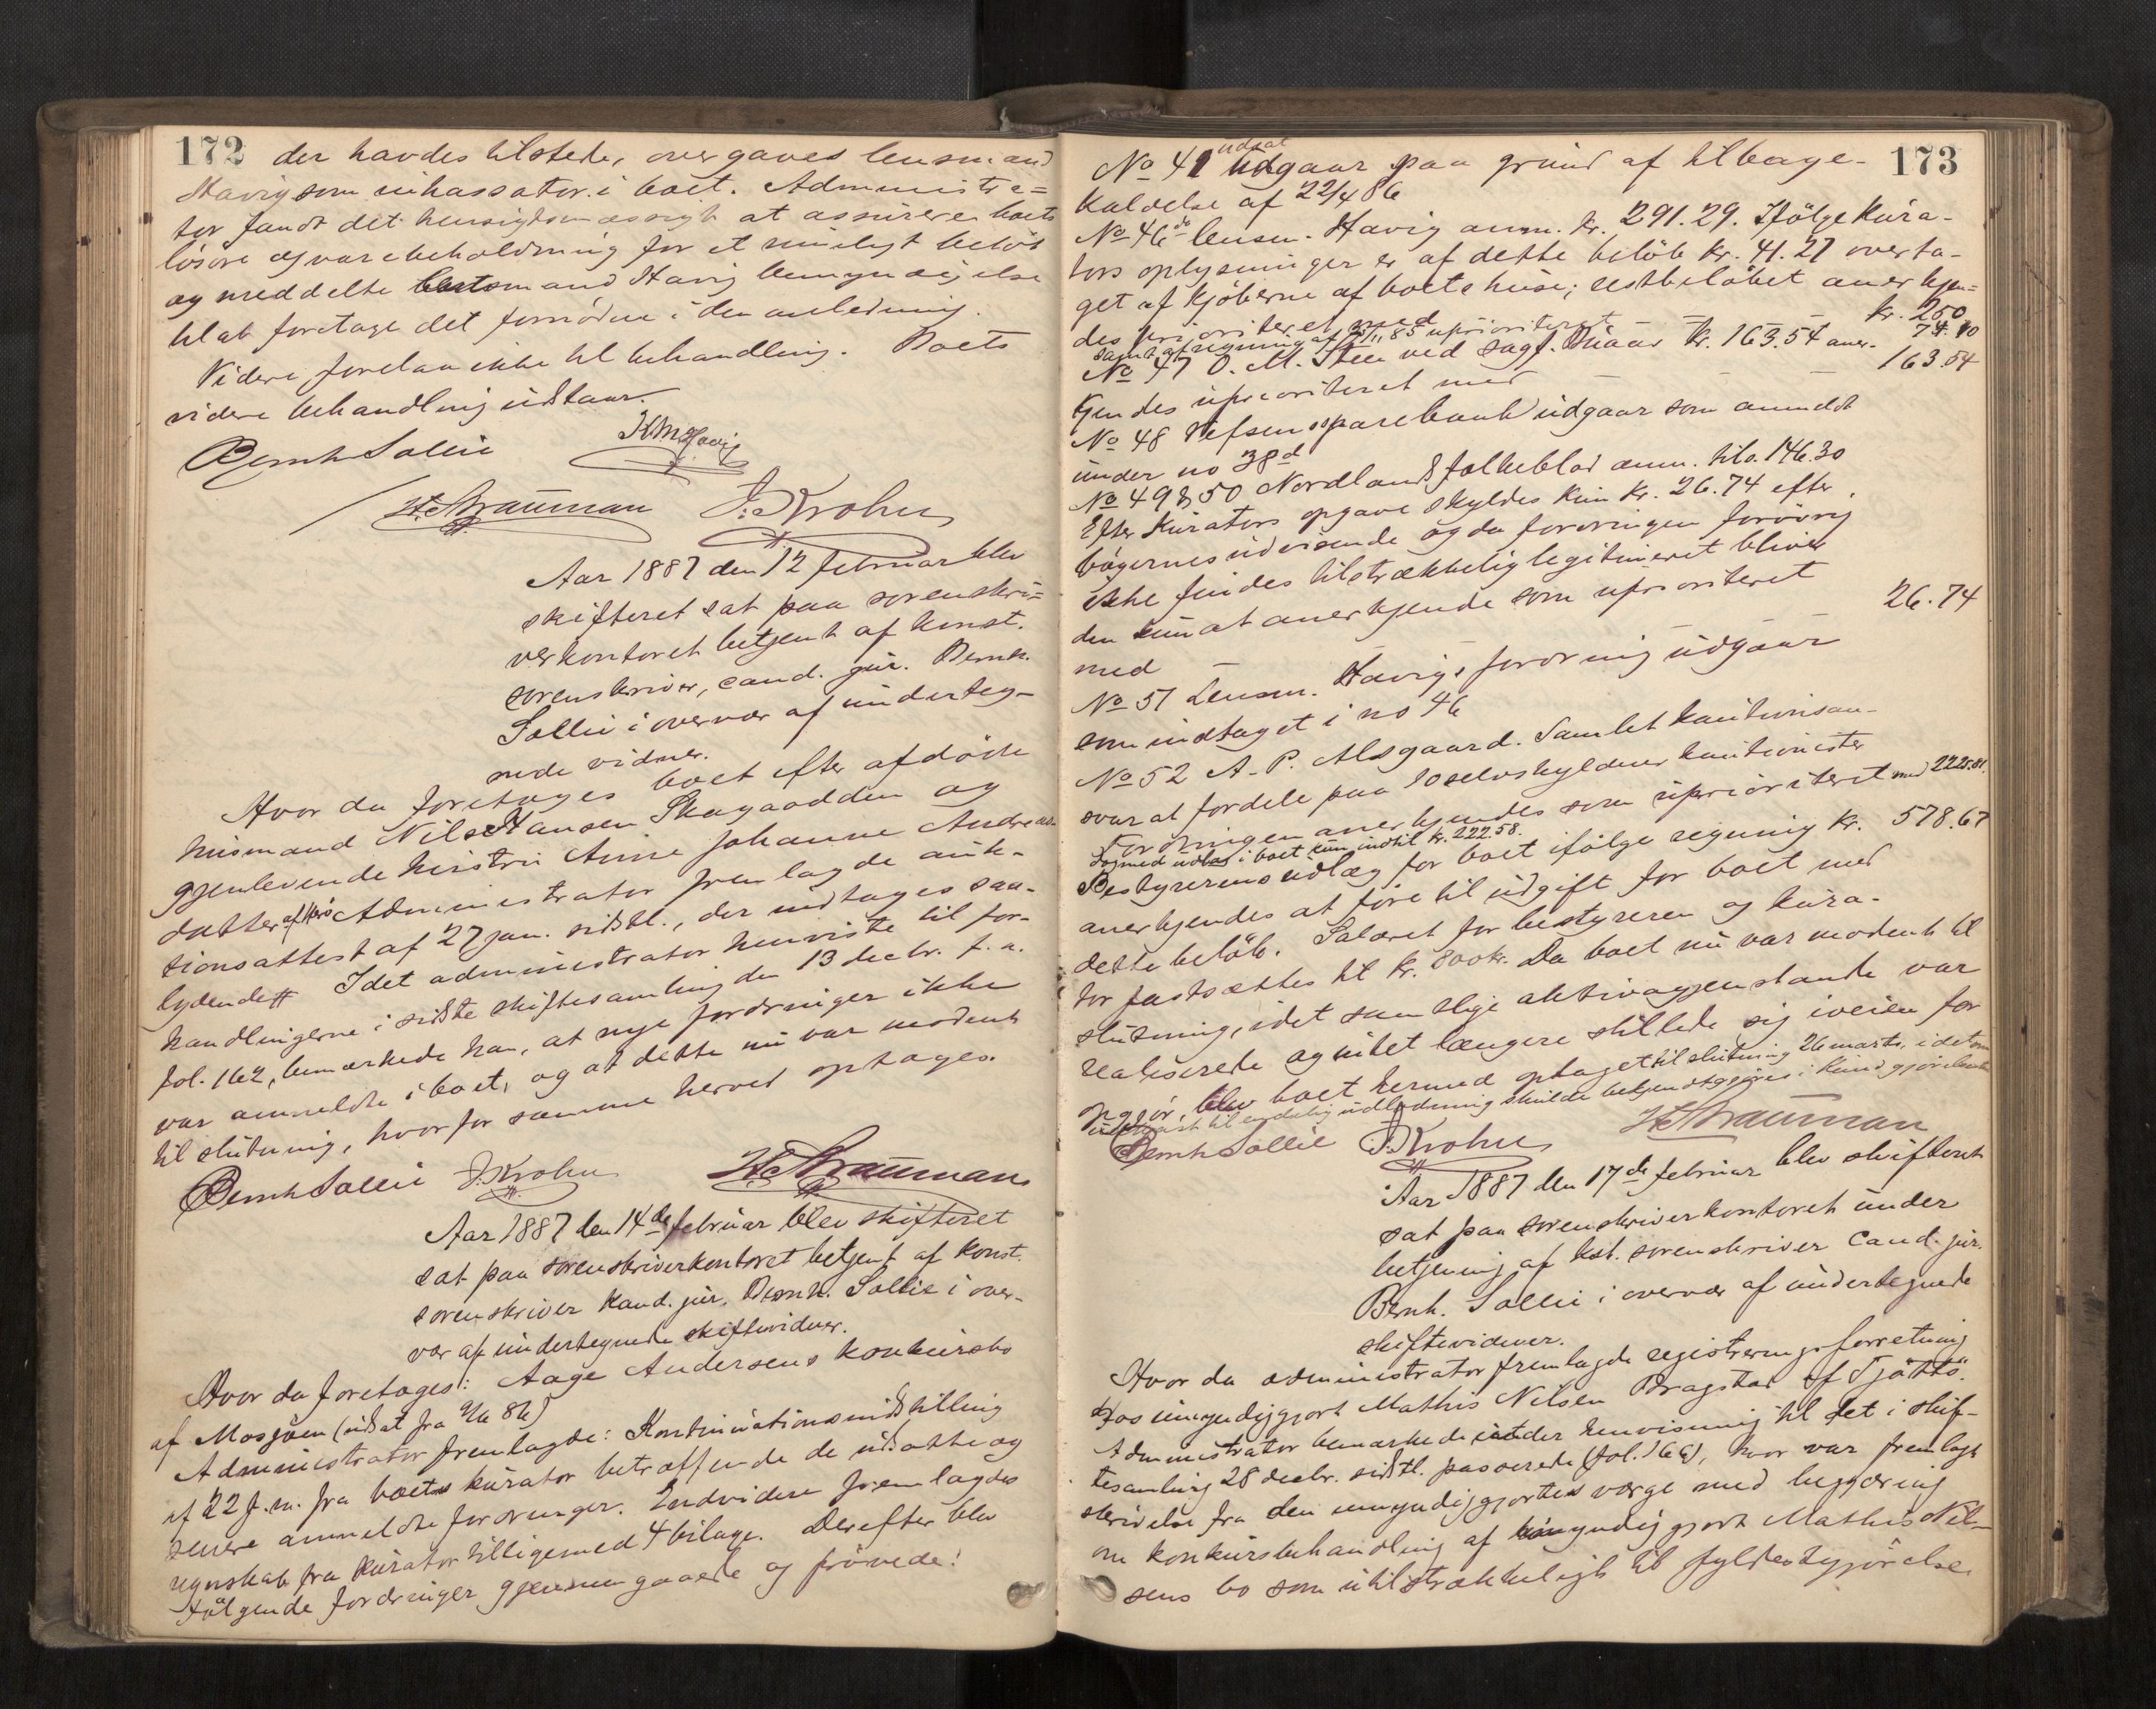 172
der havdes tilstede, overgaves lensmand
Havig som inkassator i boet. Administra=
tor fandt det hensigtsmæssigt at assurere boets
lösöre og varebeholdning for et rimeligt belöb
og meddelte lensmand Havig bemyndigelse
til at foretage det fornödne i den anledning.
Videre forelaa ikke til behandling. Boets
videre behandling udstaar.
Bernh Sollie KMHavig
H. Strauman J. Krohn
Aar 1887 den 12 februar blev
skifteret sat paa sorenskri=
verkontoret betjent af konst.
sorenskriver, cand. jur. Bernh.
Sollie i overvær af underteg-
nede vidner.
Hvor da foretages boet efter afdöde
husmand Nils Hansen Skagaodden og
gjenlevende hustru Anne Johanne Andreas
datter. Administrator fremlagde auk-
tionsattest af 27 jan. sidstl., der indtages saa-
lydende # Idet administrator henviste til for-
handlingerne i sidste skiftesamling den 13 decbr. f. a.
fol. 162, bemærkede han, at nye fordringer ikke
var anmeldte i boet, og at dette nu var modent
til slutning, hvorfor samme herved optages.
Bernh Sollie J. Krohn H. Strauman
Aar 1887 den 14de februar blev skifteret
sat paa sorenskriverkontoret betjent af konst.
sorenskriver kand. jur. Bernh. Sollie i over-
vær af undertegnede skiftevidner.
Hvor da foretages: Aage Andersens konkursbo
af Mosjöen (udsat fra 9/6 86)
Administrator fremlagde: Kontinuationsindstilling
af 22 f. m. fra boets kurator betræffende de udsatte og
senere anmeldte fordringer. Endvidere fremlagdes
regnskab fra kurator tilligemed 4 bilage. Derefter blev
fölgende fordringer gjennemgaaede og prövede:
173
No 41 udsat udgaar paa grund af tilbage-
kaldelse af 22/4 86
No 46 do lensm. Havig anm. kr. 291.29. Ifölge kura-
tors oplysninger er af dette belöb kr. 41.27 overta-
get af kjöberne af boets huse; restbelöbet anerkjen-
des prioriteret med kr. 250
samt af regning af 15/11 85 uprioriteret 74.10
No 47 O. M. Steen ved sagf. Knaar kr. 163.54 aner-
kjendes uprioriteret med 163.54
No 48 Vefsens sparebank udgaar som anmeldt
under no 38d
No 49 & 50 Nordlands folkeblad anm. tils. 146.30
Efter kurators opgave skyldes kun kr. 26.74 efter
bögernes udvisende og da fordringen forövrig
ikke findes tilstrækkelig legitimeret bliver
den kun at anerkjende som uprioriteret
med 26.74
No 51 Lensm. Havigs fordring udgaar
som indtaget i no 46
No 52 A. P. Alsgaard. Samlet kautionsan-
svar at fordele paa 10 selvskyldner kautionister
Fordringen anerkjendes som uprioriteret med 2225.81.
dog med udlæg i boet kun indtil kr. 222.58.
Bestyrerens udlæg for boet ifölge regning kr. 578.67
anerkjendes at före til udgift for boet med
dette belöb. Salæret for bestyreren og kura-
tor fastsættes til kr. 800 kr. Da boet nu var modent til
slutning, idet samtlige aktivagjenstande var
realiserede og intet længere stillede sig iveien for
opgjör, blev boet hermed optaget til slutning 26 marts, idet som
udkast til endelig udlodning skulde bekjendtgjöres i Kundgjörelsest.
Bernh Sollie J. Krohn H. Strauman
Aar 1887 den 17de februar blev skifteret
sat paa sorenskriverkontoret under
betjening af kst. sorenskriver cand. jur.
Bernh. Sollie i overvær af undertegnede
skiftevidner.
Hvor da administrator fremlagde registreringsforretning
hos umyndiggjort Mathis Nilsen Dragstad af Tjöttö.
Administrator bemærkede under henvisning til det i skif-
tesamling 28 decbr. sidstl. passerede (fol. 166), hvor var fremlagt
skrivelse fra den umyndiggjortes værge med begjæring
om konkursbehandling af umyndiggjort Mathis Nil-
sens bo som utilstrækkeligt til fyldestgjörelse